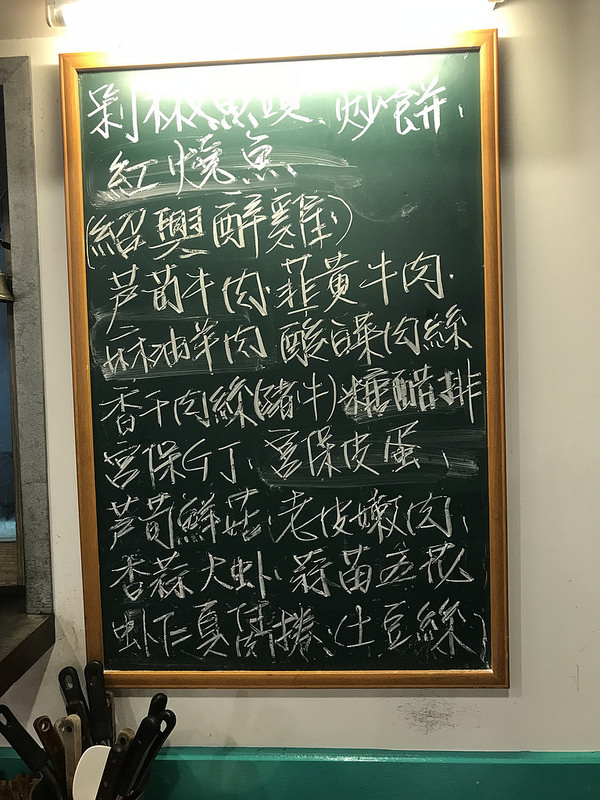 剁椒魚頭、炒餅、
紅燒魚
(紹興醉雞、)
芦荀牛肉·韮黃牛肉.
麻油羊肉 酸白菜肉絲
香干肉絲(豬、牛)糖醋排
宮保GJ、宮保皮蛋、
芦荀鮮菇、老皮嫩肉、
香蒜大虾、蒜苗
虾仁 捲、(土豆絲)